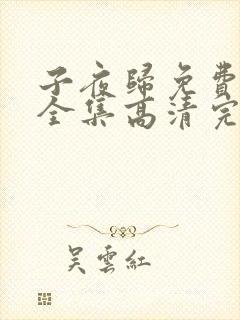 子夜歸免費
全集高清完
吴雲紅